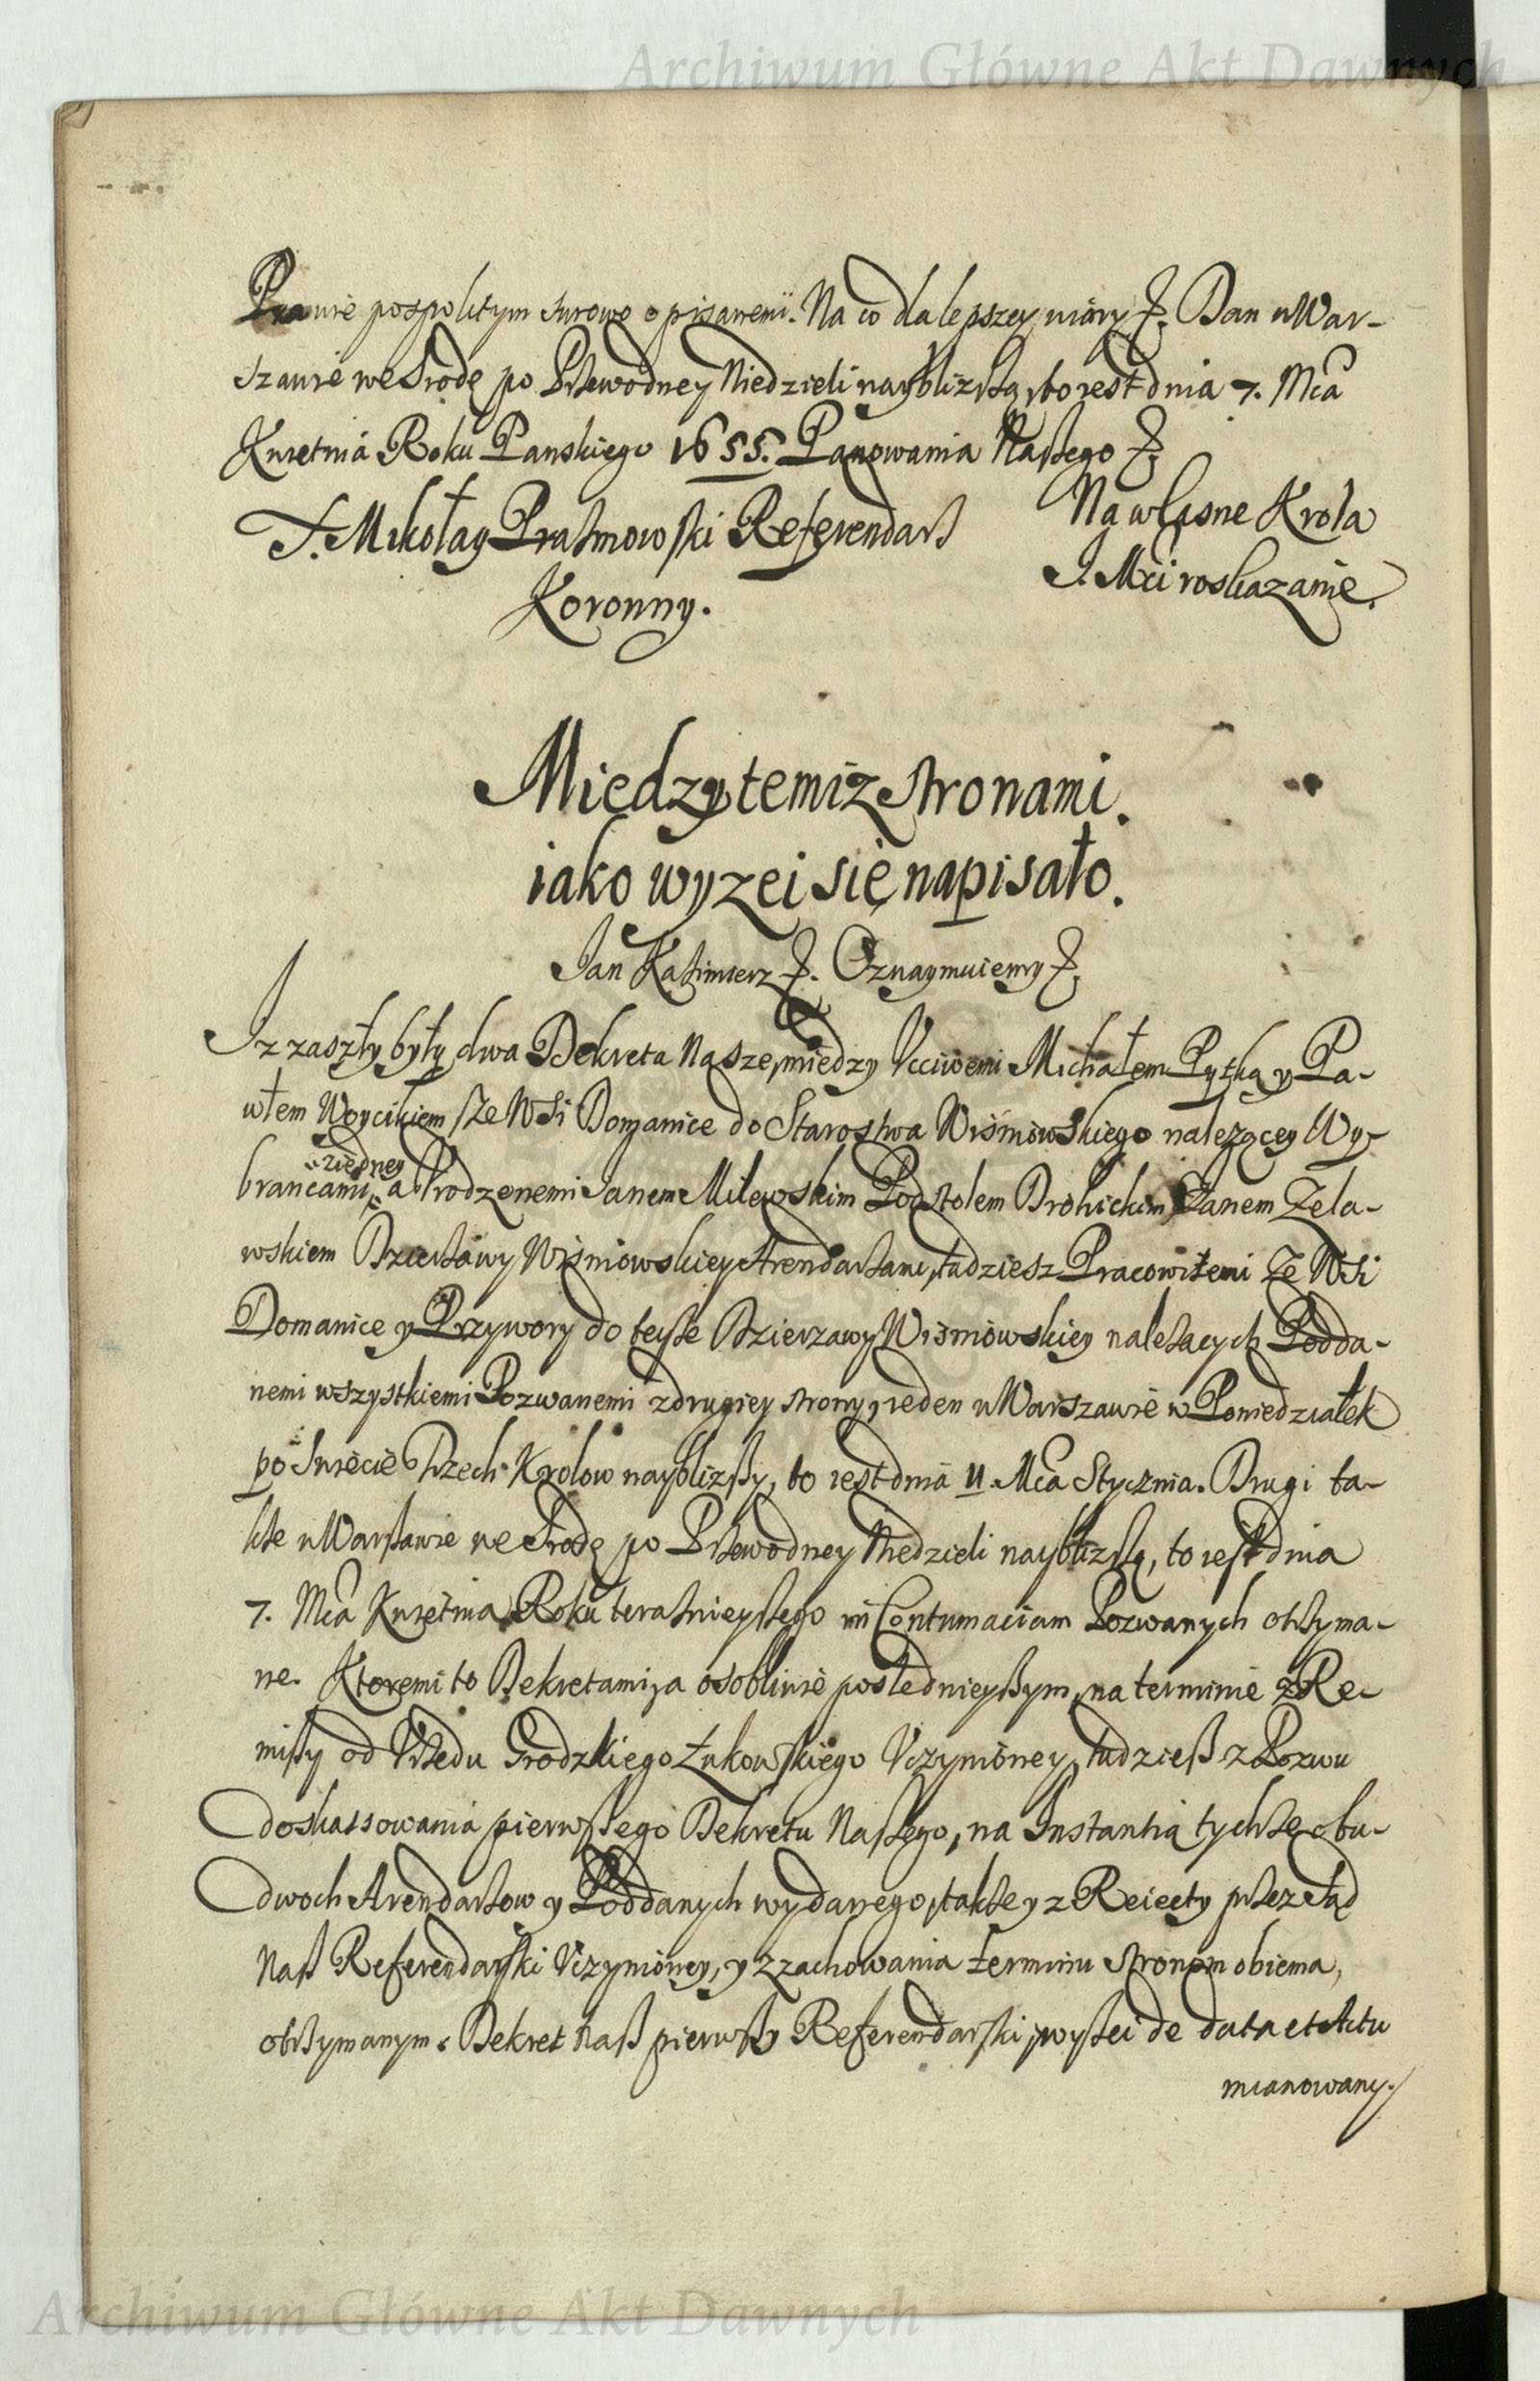 Archiwum Główne Akt Dawnych
Prawie pospolitym surowo opisanemi. Na co dla lepszey wiary &. Dan w War-
szawie we Srodę po Przewodney Niedzieli naybliższą, to iest dnia 7. Mca
Kwietnia Roku Panskiego 1655. Panowania Naszego &.
X. Mikołay Prażmowski Referendarz
Koronny.
Na własne Krola
J. Mci roskazanie.
Miedzy temiz stronami.
iako wyzei się napisało.
Jan Kazimierz &. Oznaymuiemy &.
Iz zaszły były dwa Dekreta Nasze, miedzy Vcciwemi Michałem Pytką y Pa-
włem Woycikiem, ze Wsi Domanice do Starostwa Wisniowskiego należącey Wy-
brancami, z iedney a Vrodzenemi Janem Milewskim Podstolem Drohickim, Janem Zela-
wskiem Dzierżawy Wisniowskiey Arendarzami, tudziesz Pracowitemi Ze Wsi
Domanice y Przywory do teyże Dzierzawy Wisniowskiey należacych Podda-
nemi wszystkiemi Pozwanemi z drugiey strony, ieden w Warszawie w Poniedziałek
po Swięcie Trzech Krolow naybliższy, to iest dnia 11. Mca Stycznia. Drugi ta-
kże w Warszawie we Srodę po Przewodney Niedzieli naybliższą, to iest dnia
7. Mca Kwietnia Roku teraznieyszego in Contumaciam Pozwanych otrzyma-
ne. Ktoremi to Dekretami, a osobliwie poslednieyszym, na terminie z Re-
missy od Vrzedu Grodzkiego Łukowskiego Vczynioney, tudziesz z Pozwu
do skassowania pierwszego Dekretu Naszego, na Instantią tychże obu-
dwoch Arendarzow y Poddanych wydanego, także y z Reiecty przez Sąd
Nasz Referendarski Vczynioney, y z zachowania terminu stronom obiema,
otrzymanym. Dekret Nasz pierwszy Referendarski, wyżei de data et Actu
mianowany.
Archiwum Główne Akt Dawnych